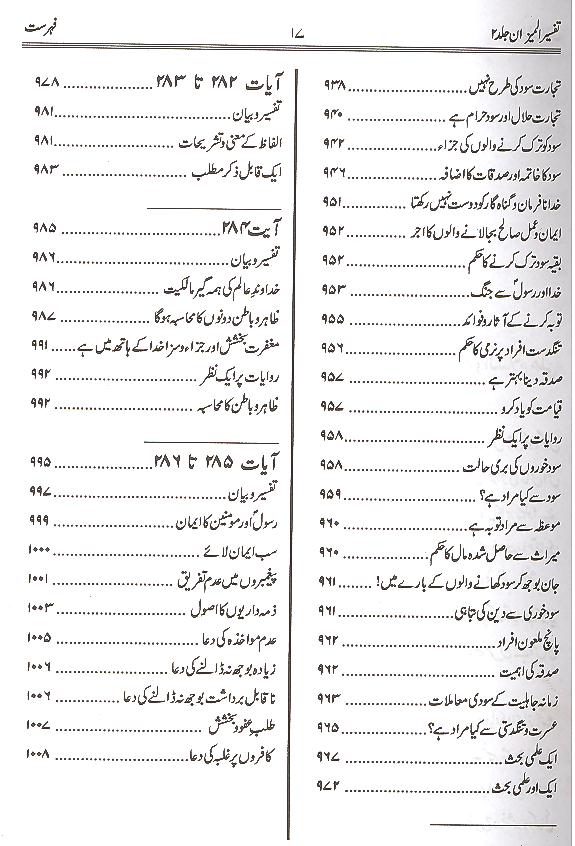 تفسیر المیزان جلد ۲ ۱۷ فہرست
تجارت سود کی طرح نہیں ۹۳۸
تجارت حلال اور سود حرام ہے ۹۴۰
سود کو ترک کرنے والوں کی جزاء ۹۴۲
سود کا خاتمہ اور صدقات کا اضافہ ۹۴۶
خدا نافرمان و گناہ گار کو دوست نہیں رکھتا ۹۵۱
ایمان و عمل صالح بجا لانے والوں کا اجر ۹۵۲
بقیہ سود ترک کرنے کا حکم ۹۵۲
خدا اور رسولؐ سے جنگ ۹۵۳
توبہ کرنے کے آثار و فوائد ۹۵۵
تنگدست افراد پر نرمی کا حکم ۹۵۶
صدقہ دینا بہتر ہے ۹۵۷
قیامت کو یاد کرو ۹۵۷
روایات پر ایک نظر ۹۵۸
سود خوروں کی بری حالت ۹۵۸
سود سے کیا مراد ہے؟ ۹۵۹
موعظہ سے مراد توبہ ہے ۹۶۰
میراث سے حاصل شدہ مال کا حکم ۹۶۰
جان بوجھ کر سود کھانے والوں کے بارے میں! ۹۶۱
سود خوری سے دین کی تباہی ۹۶۱
پانچ ملعون افراد ۹۶۲
صدقہ کی اہمیت ۹۶۲
زمانہ جاہلیت کے سودی معاملات ۹۶۳
عسرت و تنگدستی سے کیا مراد ہے؟ ۹۶۵
ایک علمی بحث ۹۶۷
ایک اور علمی بحث ۹۷۲
آیات ۲۸۲ تا ۲۸۳ ۹۷۸
تفسیر و بیان ۹۸۱
الفاظ کے معنی و تشریحات ۹۸۱
ایک قابل ذکر مطلب ۹۸۳
آیت ۲۸۴ ۹۸۵
تفسیر و بیان ۹۸۶
خداوند عالم کی ہمہ گیر مالکیت ۹۸۶
ظاہر و باطن دونوں کا محاسبہ ہوگا ۹۸۷
مغفرت و بخشش اور جزاء و سزا خدا کے ہاتھ میں ہے ۹۹۱
روایات پر ایک نظر ۹۹۲
ظاہر و باطن کا محاسبہ ۹۹۲
آیات ۲۸۵ تا ۲۸۶ ۹۹۵
تفسیر و بیان ۹۹۷
رسولؐ اور مومنین کا ایمان ۹۹۹
سب ایمان لائے ۱۰۰۰
پیغمبروں میں عدم تفریق ۱۰۰۱
ذمہ داریوں کا اصول ۱۰۰۳
عدم مواخذہ کی دعا ۱۰۰۵
زیادہ بوجھ نہ ڈالنے کی دعا ۱۰۰۶
ناقابل برداشت بوجھ نہ ڈالنے کی دعا ۱۰۰۶
طلب عفو و بخشش ۱۰۰۷
کافروں پر غلبہ کی دعا ۱۰۰۸